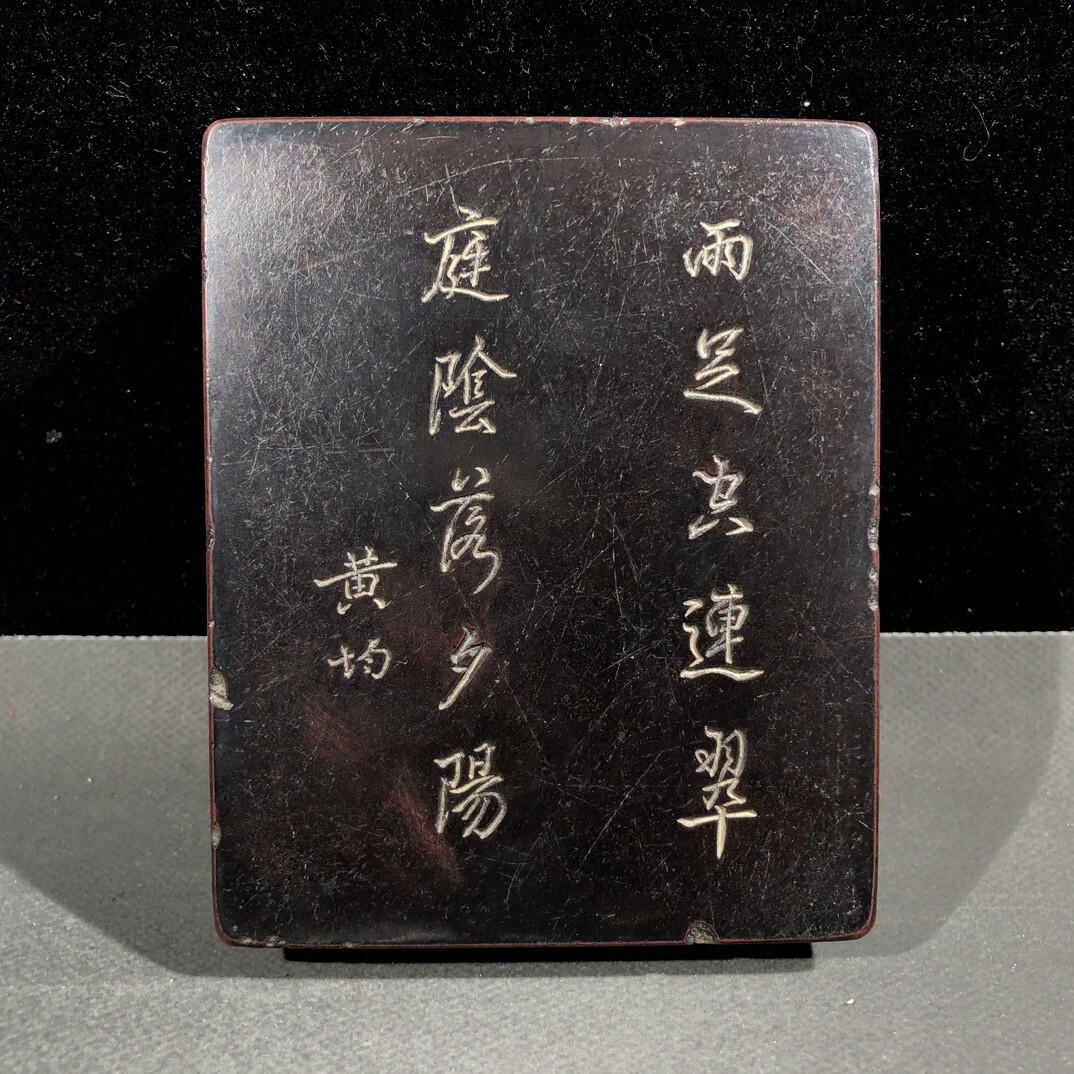 雨足空連翠
庭陰落夕陽
黄均